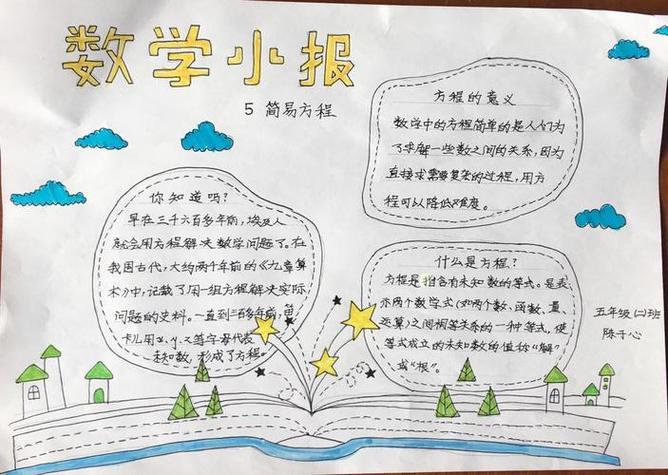 数学小报
5 简易方程
方程的意义
数学中的方程简单的是人们为
了求解一些数之间的关系,因为
直接求需要复杂的过程,用方
程可以降低难度。
你知道吗?
早在三千六百多年前,埃及人
就会用方程解决数学问题了。在
我国古代,大约两千年前的《九章算
术》中,记载了用一组方程解决实际
问题的史料。一直到三百多年前,笛
卡儿用x、y、z等字母代表
未知数,形成了方程。
什么是方程?
方程是指含有未知数的等式。是表
示两个数学式(如两个数、函数、量、
运算)之间相等关系的一种等式,使
等式成立的未知数的值称“解”
或“根”。
五年级(二)班
陈于心